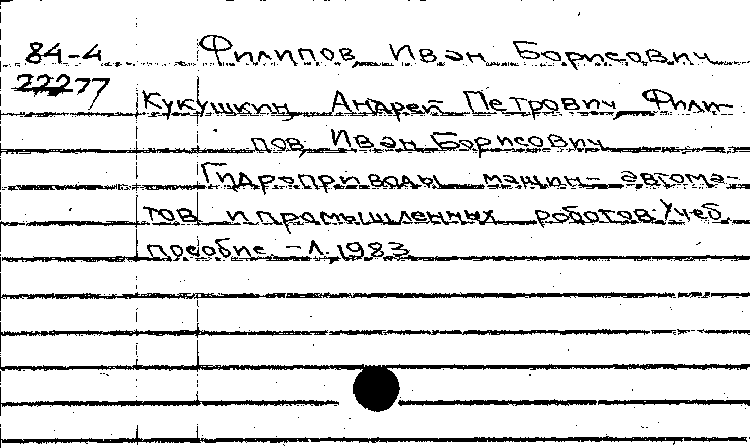 84-4 Филипов, Иван Борисович
22277
Кукушкин, Андрей Петрович, Фили-
пов, Иван Борисович
Гидроприводы машин-автома-
тов и промышленных роботов: Учеб.
пособие. - Л., 1983